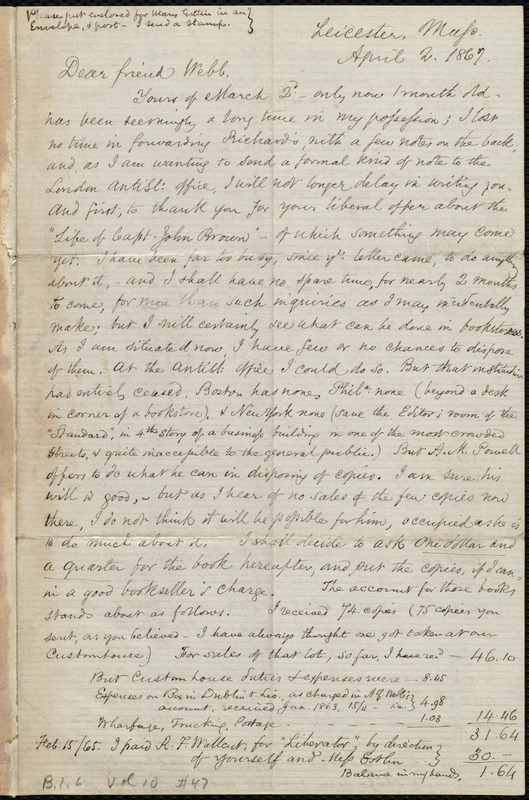 Please put enclosed for Mary Estlin in an
Envelope, & post - I send a stamp.
Leicester, Mass.
April 2. 1867.
Dear friend Webb,
Yours of March 2d - only now 1 month old -
has been seemingly a long time in my possession; I lost
no time in forwarding Richard's, with a few notes on the back,
and, as I am wanting to send a formal kind of note to the
London AntiSl: office, I will not longer delay in writing you.
And first, to thank you for your liberal offer about the
"Life of Capt. John Brown" - of which something may come
yet. I have been far too busy, since yr: letter came, to do anythg
about it, - and I shall have no spare time, for nearly 2 months
to come, for more than such inquiries as I may incidentally
make; but I will certainly see what can be done in bookstores.
As I am situated now, I have few or no chances to dispose
of them. At the AntiSl: office I could do so. But that institution
has entirely ceased. Boston has none, Phila none (beyond a desk
in corner of a bookstore), & New York none (save the Editor's room of the
"Standard", in 4th story of a business building in one of the most crowded
streets, & quite inaccessible to the general public.) But A. M. Powell
offers to do what he can in disposing of copies. I am sure his
will is good, - but as I hear of no sales of the few copies now
there, I do not think it will be possible for him, occupied as he is
to do much about it. I shall decide to ask One dollar and
a quarter for the book hereafter, and put the copies, if I can,
in a good bookseller's charge. The account for those books
stands about as follows: I received 74 copies (75 copies you
sent, as you believed - I have always thought one got taken at our
Customhouse) For sales of that lot, so far, I have recd - 46.10
But Custom house duties & expenses were - 8.45
Expenses on Box in Dublin & Lio., as charged in
account, received Jan. 1863, 15/11 - i.e. 4.98
Wharfage, Trucking, Postage 1.03 14.46
31.64
Feb. 15/65. I paid R. F. Wallcut, for "Liberator", by direction
of yourself and Miss Estlin 30.-
Balance in my hands, 1.64
B.1.6 Vol 10 #47